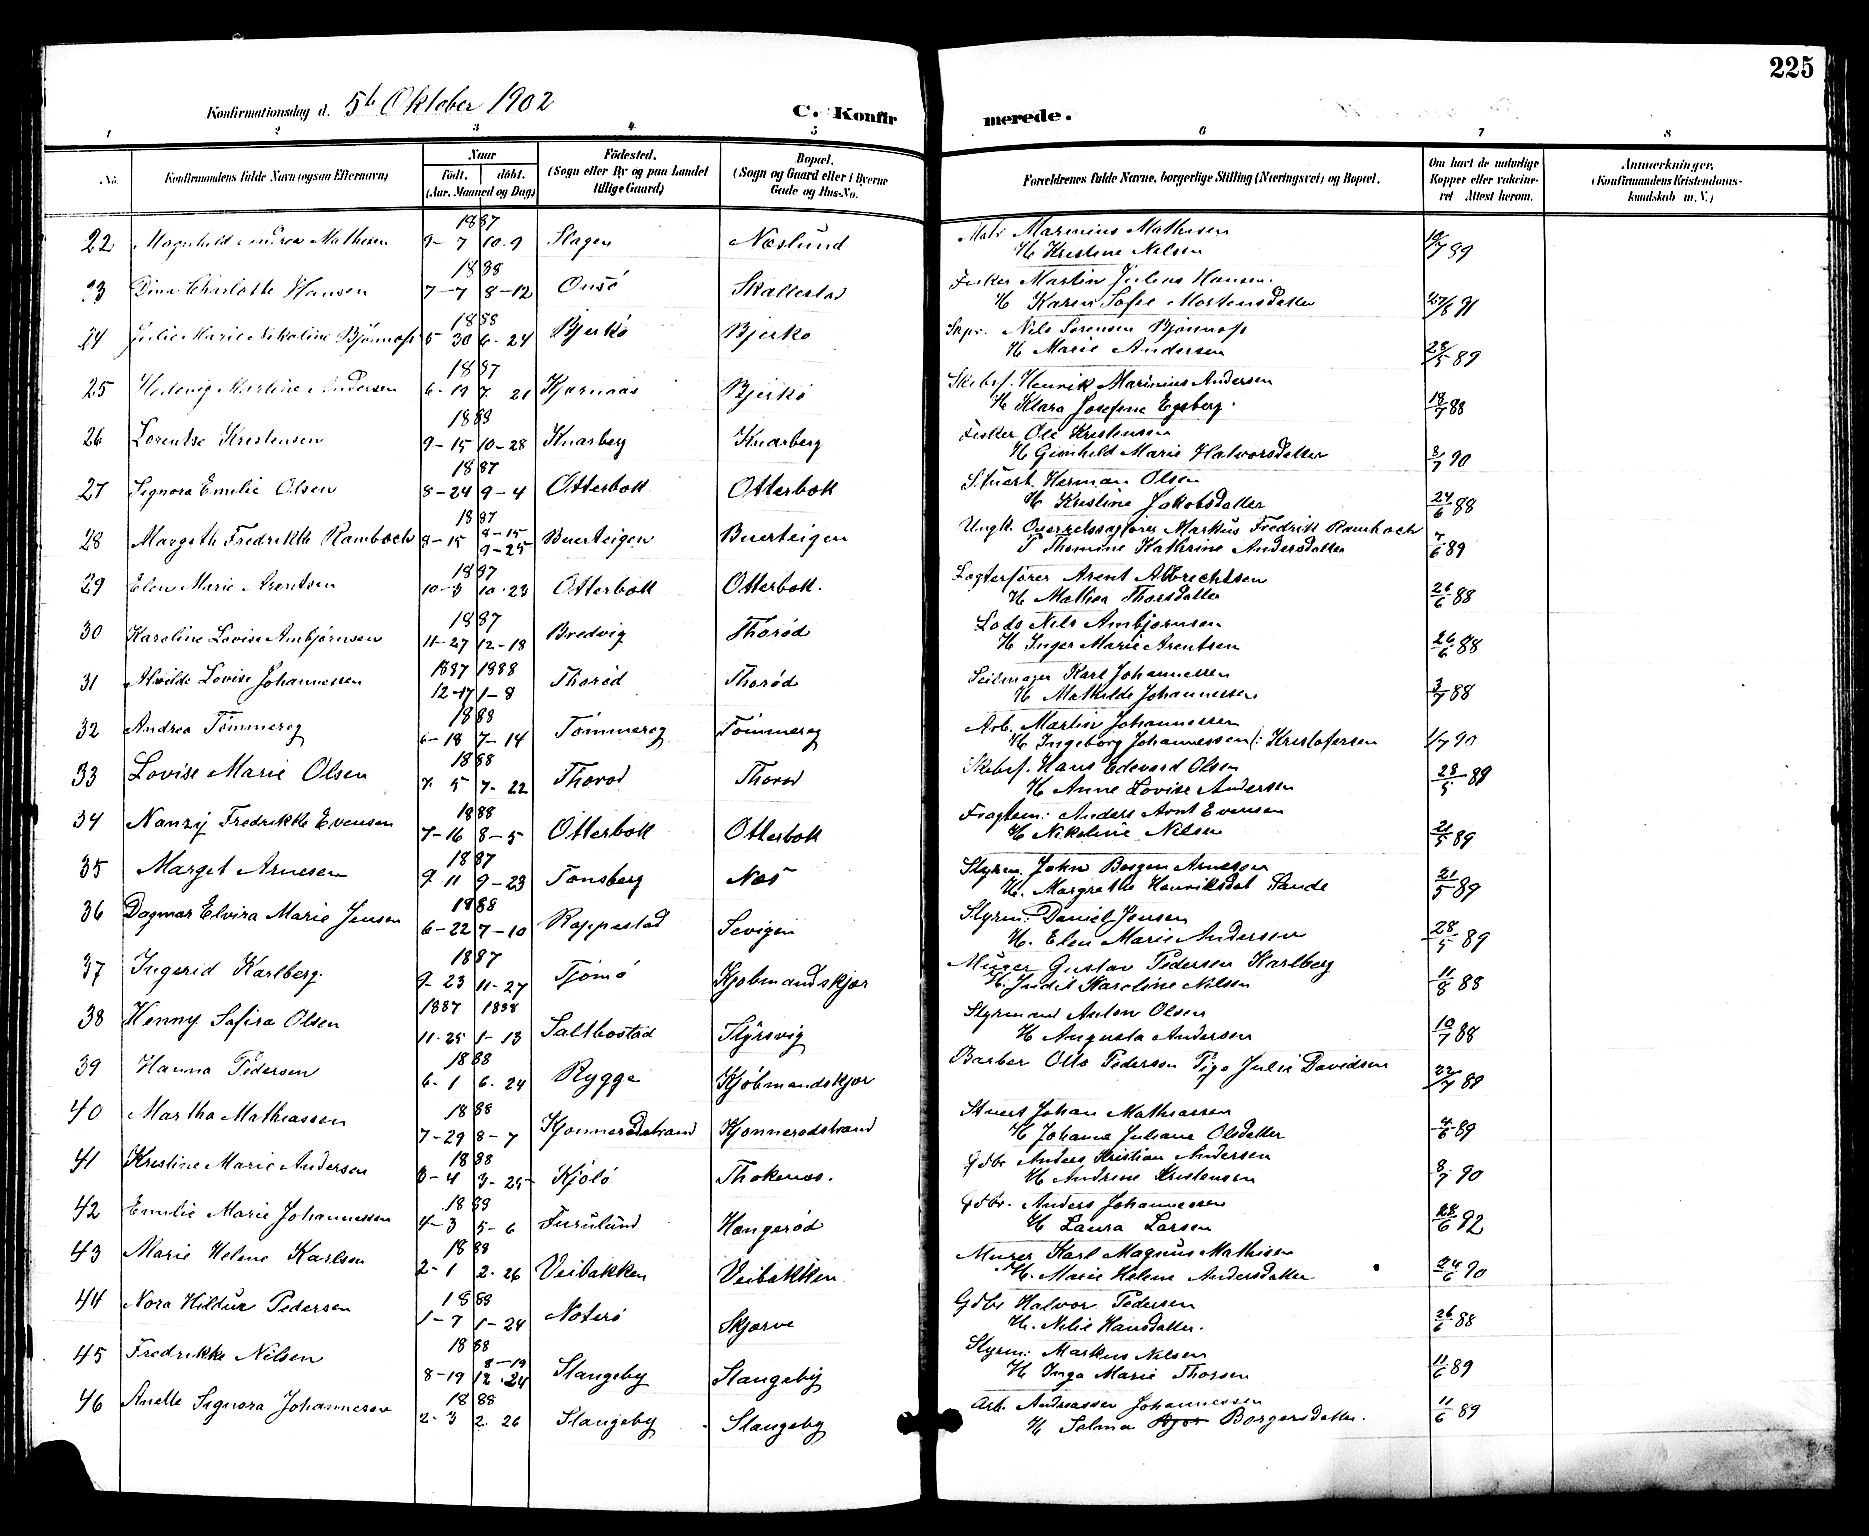 225
Konfirmationsdag d. 5te Oktober 1902
C. Konfirmerede.
1 2 3 4 5 6 7 8
No. Konfirmandens fulde Navn (ogsaa Efternavn)
Naar Født. døbt. (Aar, Maaned og Dag)
Fødested. (Sogn eller By og paa Landet tillige Gaard)
Bopæl. (Sogn og Gaard eller i Byerne Gade og Hus-No.
Forældrenes fulde Navne, borgerlige Stilling (Næringsvei) og Bopæl.
Om havt de naturlige Kopper eller vakcineret Attest herom.
Anmærkninger. (Konfirmandens Kristendomskundskab m. V.)
1887
22 Magnhild Andrea Mathisen 9-7 10-9 Slagen Næslund Matr Marinius Mathisen
H Kristine Nilsen 89
1888
23 Dina Charlotte Hansen 7-7 8-12 Onsö Skallestad Fisker Martin Julius Hansen.
H Karen Sofie Mortensdatter 27/6 91
1888
24 Julie Marie Nikoline Bjönness 5 30 6-24 Bjerkö Bjerkö Skpr. Nils Sörensen Bjönness
H Marie Andersen 28/5 89
1887
25 Hedevig Martine Andersen 6-19 7 21 Kjærnaas Bjerkö Skibsf. Henrik Marinius Andersen
H Klara Josefine Egeberg. 18/7 88
1888
26 Lorentse Kristensen 9-15 10-28 Knarberg Knarberg Fisker Ole Kristensen
H Gunhild Marie Halvorsdatter 8/7 90
1887
27 Signora Emilie Olsen 8-24 9-4 Otterbæk Otterbæk Stuert Herman Olsen
H Kristine Jakobsdatter 24/6 88
1887
28 Margith Fredrikke Rambech 8-15 8-15 9-25 Buerteigen Buerteigen Ungk. Overretssagfører Markus Fredrik Rambech
P Thomine Kathrine Andersdatter 7/6 89
1887
29 Elen Marie Arentsen 10-3 10-23 Otterbæk Otterbæk. Lægterfører Arent Albrechtsen
H Mathea Thorsdatter 26/6 88
1887
30 Karoline Lovise Anbjørnsen 11-27 12-18 Bredvig Thorød Lods Nils Anbjørnsen
H Inger Marie Arentsen 26/6 88
1887 1888
31 Alvilde Lovise Johannessen 12-17 1-8 Thorød Thorød Seilmager Karl Johannessen
H Mathilde Johannessen 3/7 88
1888
32 Andrea Tømmereg 6-18 7-14 Tømmereg Tømmereg Arb. Martin Johannessen
H Ingeborg Johannessen (: Kristofersen 1/7 90
1888
33 Lovise Marie Olsen 7-5 7-22 Thorød Thorød Skibsf. Hans Edevard Olsen
H Anne Lovise Andersen 28/5 89
1888
34 Nanzy Fredrikke Evensen 7-16 8-5 Otterbæk Otterbæk Fragtem: Anders Arnt Evensen
H Nikoline Nilsen 21/5 89
1887
35 Marget Arnesen 9 11 9-23 Tønsberg Næs Styrm. John Bergen Arnesen
H. Margrethe Henriksdat Sande 21/5 89
1888
36 Dagmar Elvira Marie Jensen 6-22 7-10 Rappestad Sevigen Styrm: Daniel Jensen
H. Elen Marie Andersen 28/5 89
1887
37 Ingerid Karlberg 9-23 11-27 Tjømø Kjøbmandskjær Murer Gustav Pedersen Karlberg
H. Judit Karoline Nilsen 11/8 88
1887 1888
38 Henny Safira Olsen 11-25 1-13 Saltbostad Thyrsvig Styrmand Anton Olsen
H Augusta Andersen 10/7 88
1888
39 Hanna Pedersen 6-1 6-24 Rygge Kjøbmandskjær Barber Otto Pedersen Pige Julie Davidsen 22/7 89
1888
40 Martha Mathiassen 7-29 8-7 Kjønnerødstrand Kjønnerødstrand Stuert Johan Mathiassen
H Johanne Juliane Olsdatter 4/6 89
1888
41 Kristine Marie Andersen 3-4 3-25 Kjølø Thokenæs. Gdbr Anders Kristian Andersen
H Andrine Kristensen 8/7 90
1888
42 Emilie Marie Johannessen 4-3 5-6 Furulund Hængerød Gdbr. Anders Johannessen
H Laura Larsen 28/6 92
1888
43 Marie Helene Karlsen 2-1 2-26 Veibakken Veibakken Murer Karl Magnus Mathisen
H. Marie Helene Andersdatter 24/6 90
1888
44 Nora Hildur Pedersen 1-7 1-24 Nøterø Skjærve Gdbr Halvor Pedersen
H. Nilie Hansdatter. 26/6 88
1888
45 Fredrikke Nilsen 8-19 8-19 12-24 Slangeby Slangeby Styrm: Markus Nilsen
H Inga Marie Thorsen 11/6 89
1888
46 Anette Signora Johannesen 2-3 2-26 Slangeby Slangeby Arb. Andreassen Johannessen
H Selma Borgersdatter. 11/6 89